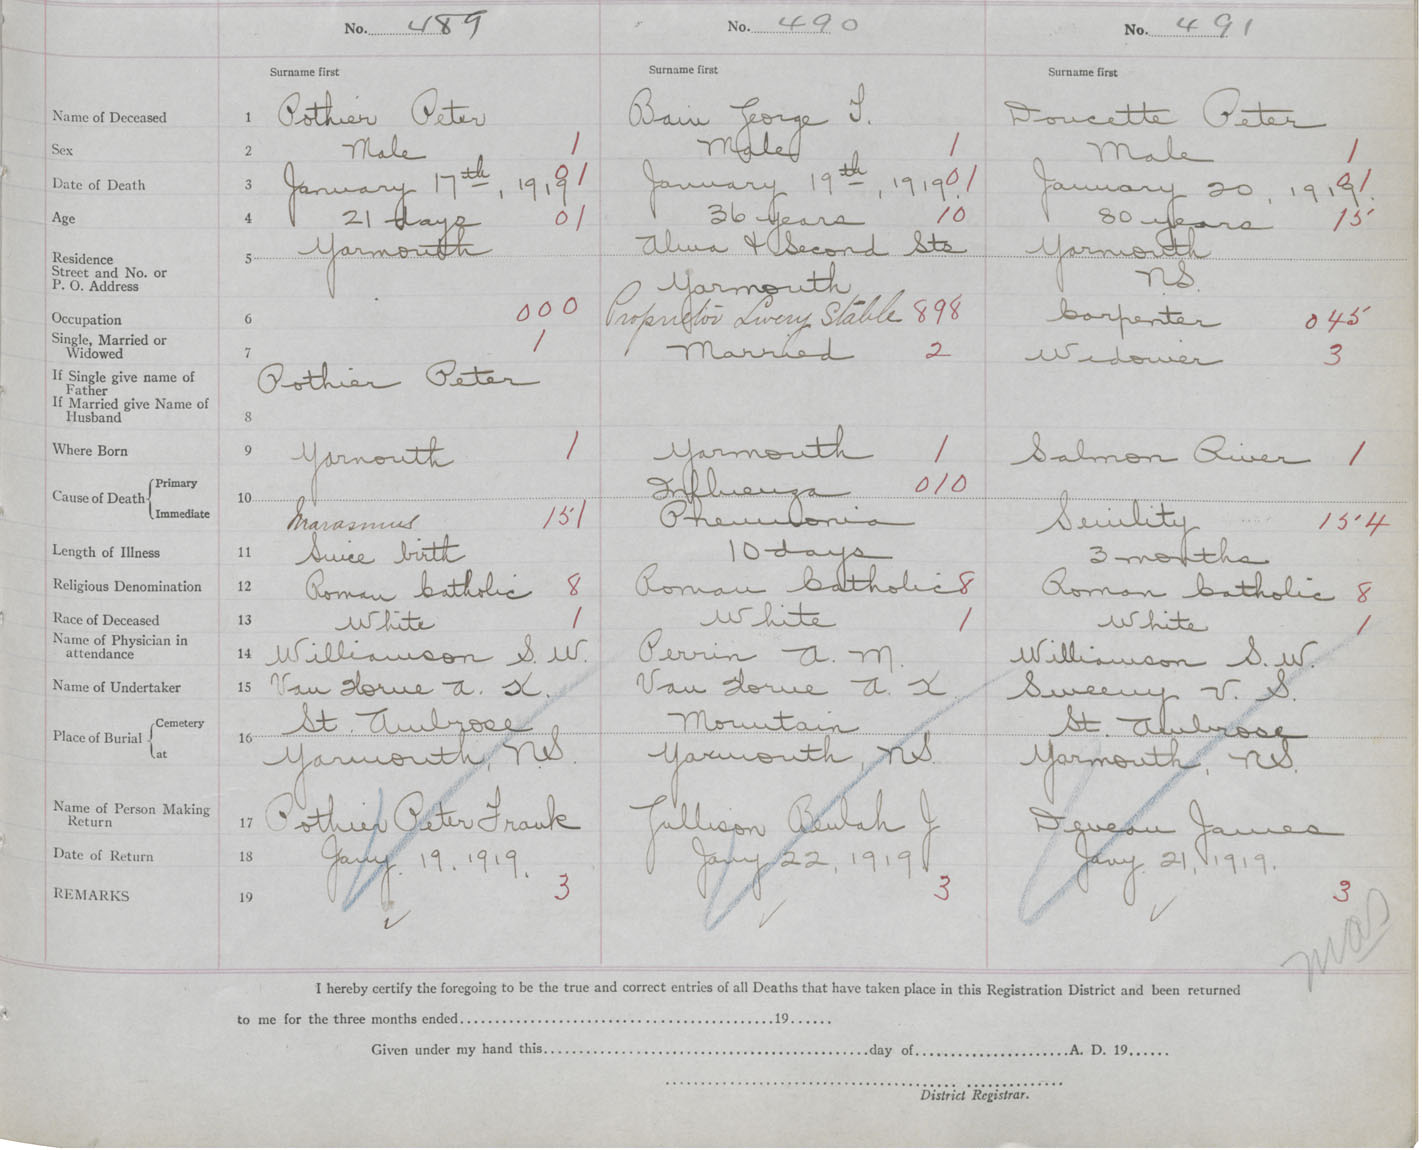 No. 489 No. 490 No. 491
Surname first Surname first Surname first
Name of Deceased 1 Pothier Peter Bain George T. Doucette Peter
Sex 2 Male 1 Male 1 Male 1
Date of Death 3 January 17th, 1919 01 January 19th, 1919. 01 January 20, 1919. 01
Age 4 21 days 01 36 years 10 80 years 15
Residence 5 Yarmouth Alma & Second Sts Yarmouth
Street and No. or
P. O. Address Yarmouth N.S.
Occupation 6 000 Proprietor Livery Stable 898 Carpenter 045
Single, Married or
Widowed 7 1 Married 2 Widower 3
If Single give name of
Father Pothier Peter
If Married give Name of
Husband 8
Where Born 9 Yarmouth 1 Yarmouth 1 Salmon River 1
Cause of Death Primary 10 Influenza 010
Immediate Marasmus 151 Pneumonia Senility 154
Length of Illness 11 Since birth 10 days 3 months
Religious Denomination 12 Roman Catholic 8 Roman Catholic 8 Roman Catholic 8
Race of Deceased 13 White 1 White 1 White 1
Name of Physician in
attendance 14 Williamson S. W. Perrin A. M. Williamson S. W.
Name of Undertaker 15 Van Horne A. K. Van Horne A. K. Sweeny V. S.
Place of Burial Cemetery 16 St. Ambrose Mountain St. Ambrose
at Yarmouth, N.S. Yarmouth, N.S. Yarmouth, N.S.
Name of Person Making
Return 17 Pothier Peter Frank Jallison Beulah J Deveau James
Date of Return 18 Jany. 19. 1919. Jany 22, 1919 Jany. 21, 1919.
REMARKS 19 3 3 3
I hereby certify the foregoing to be the true and correct entries of all Deaths that have taken place in this Registration District and been returned
to me for the three months ended 19
Given under my hand this day of A. D. 19
District Registrar.